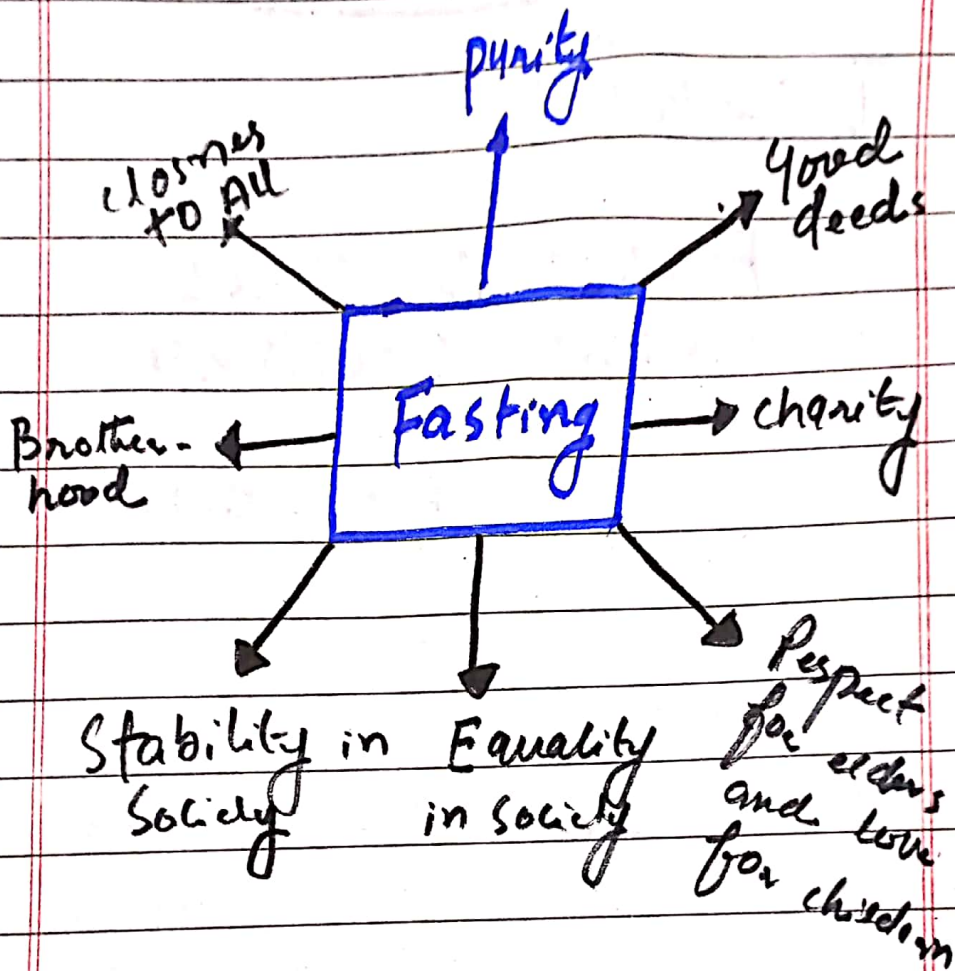 purity
closnes
to All
Good
deeds
Fasting
charity
Brother-
hood
Stability in
Society
Equality
in society
Respect
for elders
and love
for children